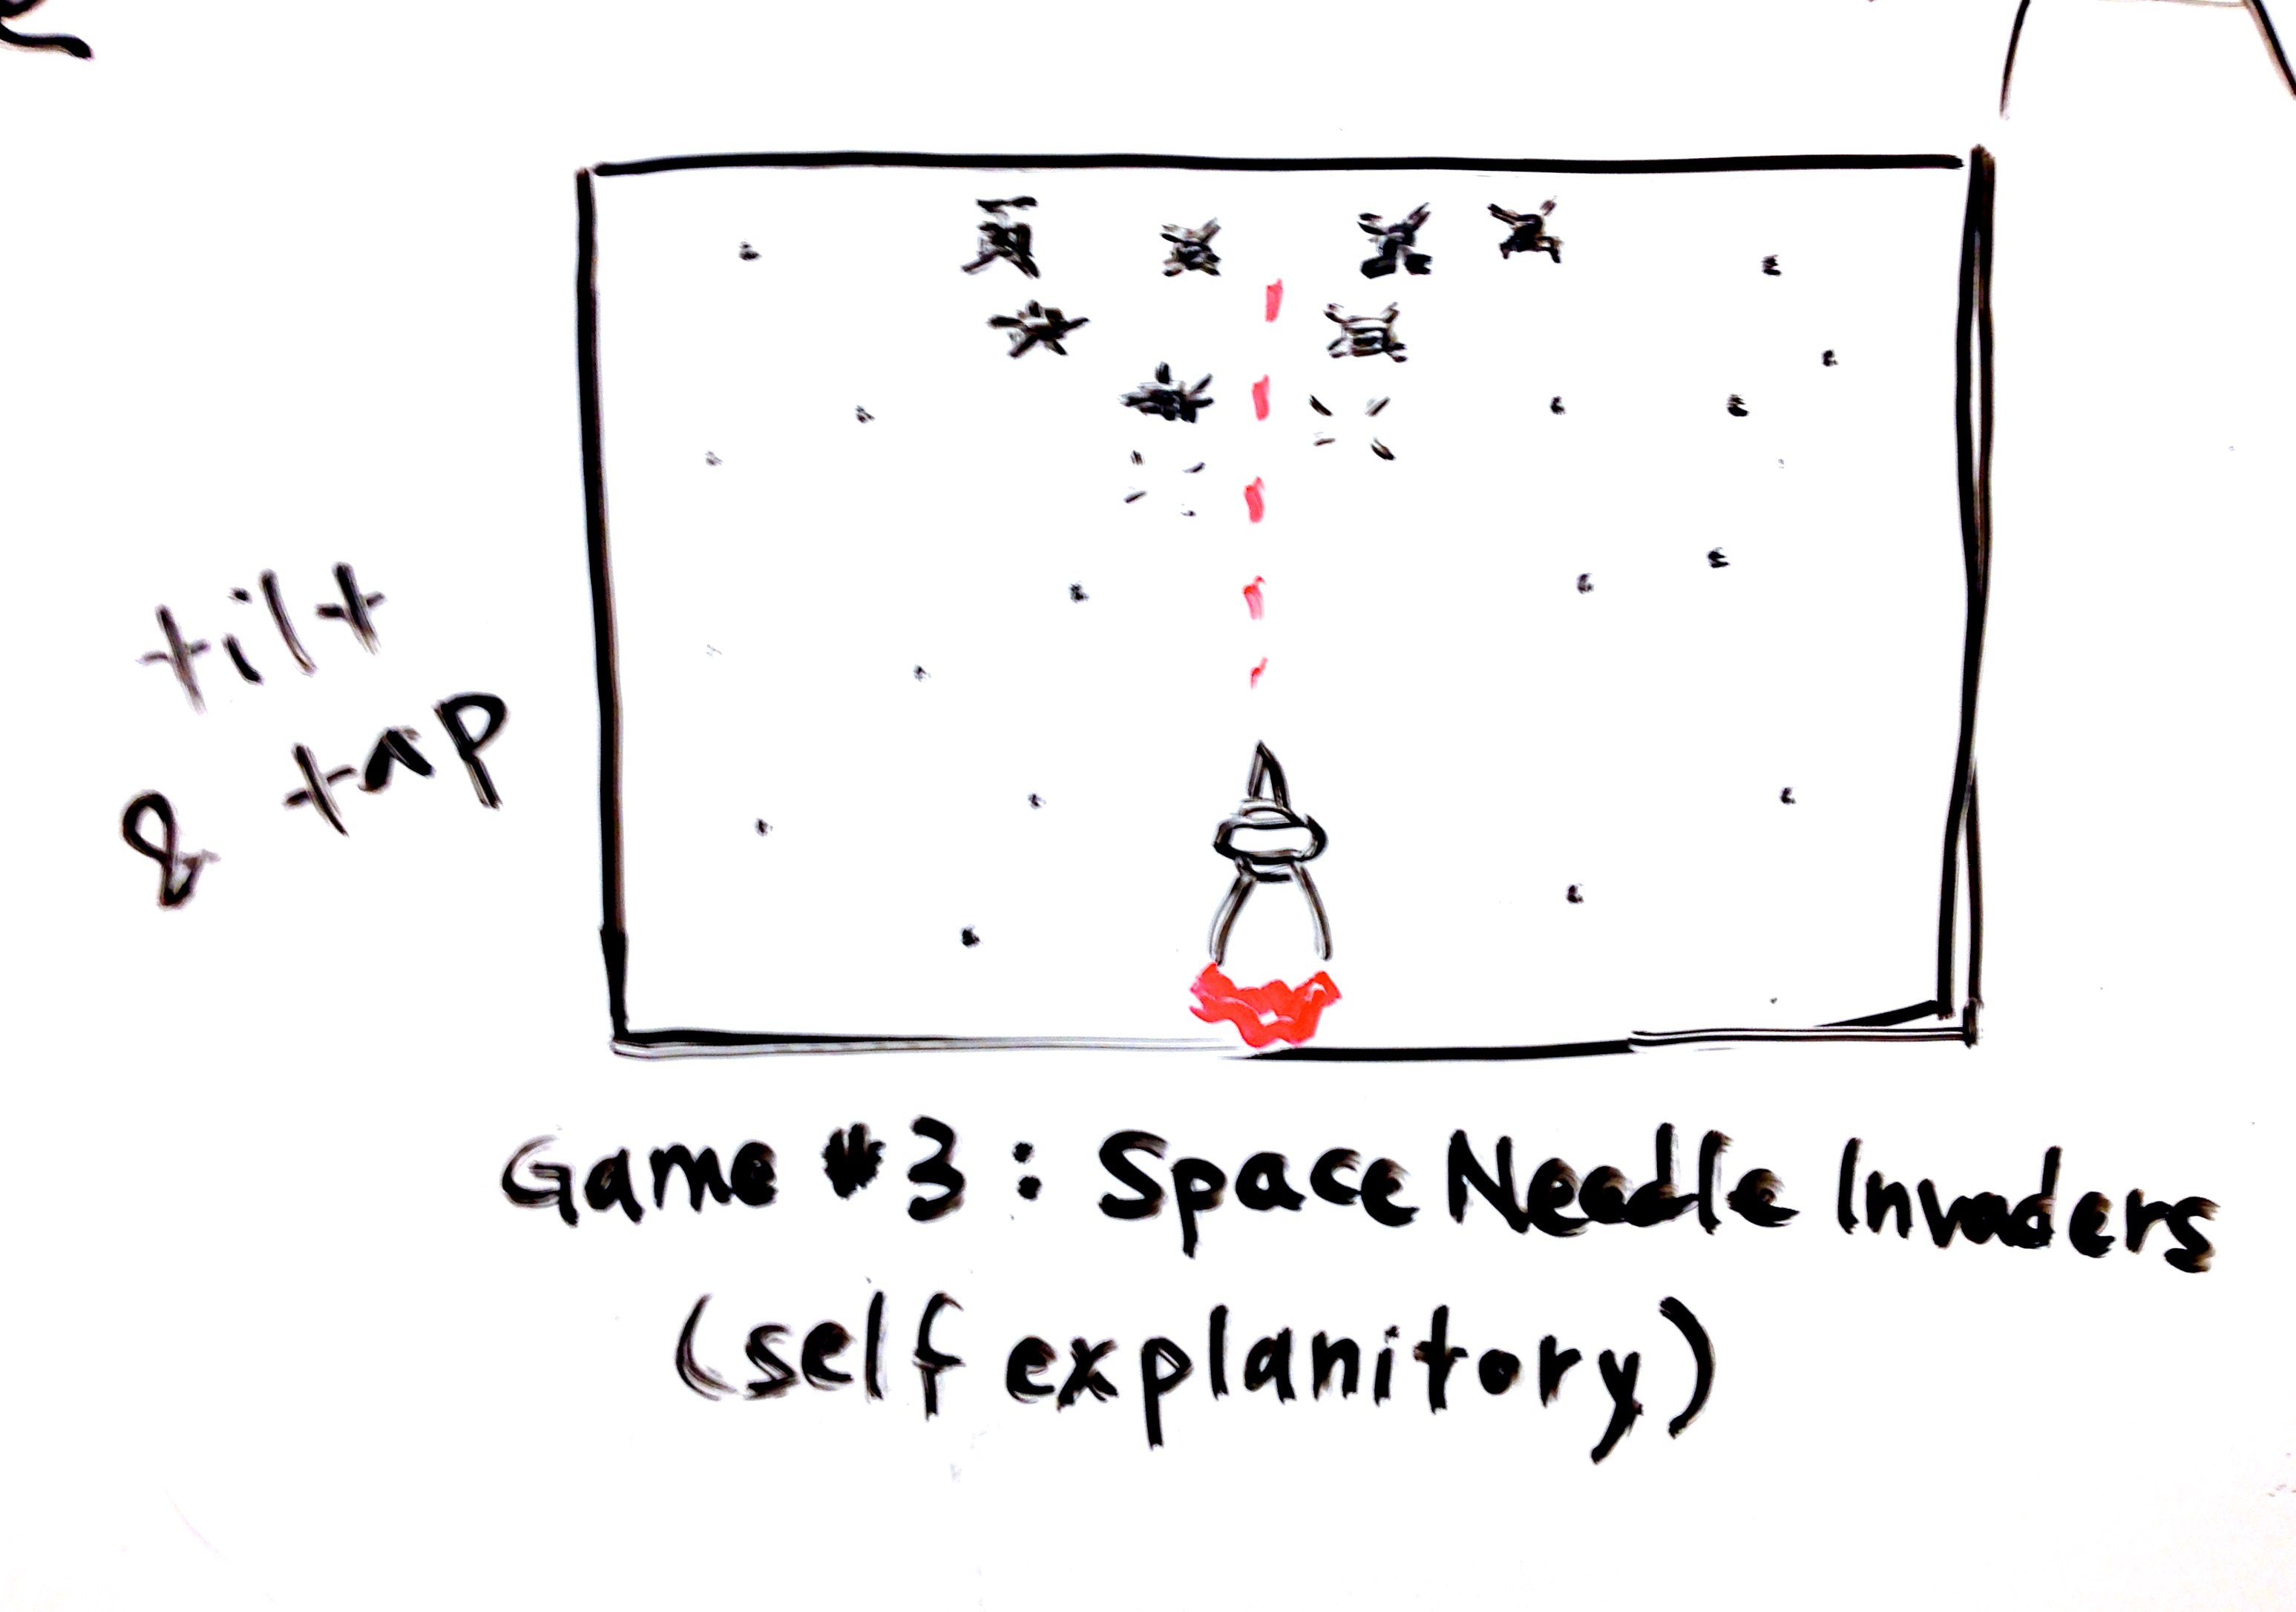 tilt
& tap
Game #3: Space Needle Invaders
(self explanitory)